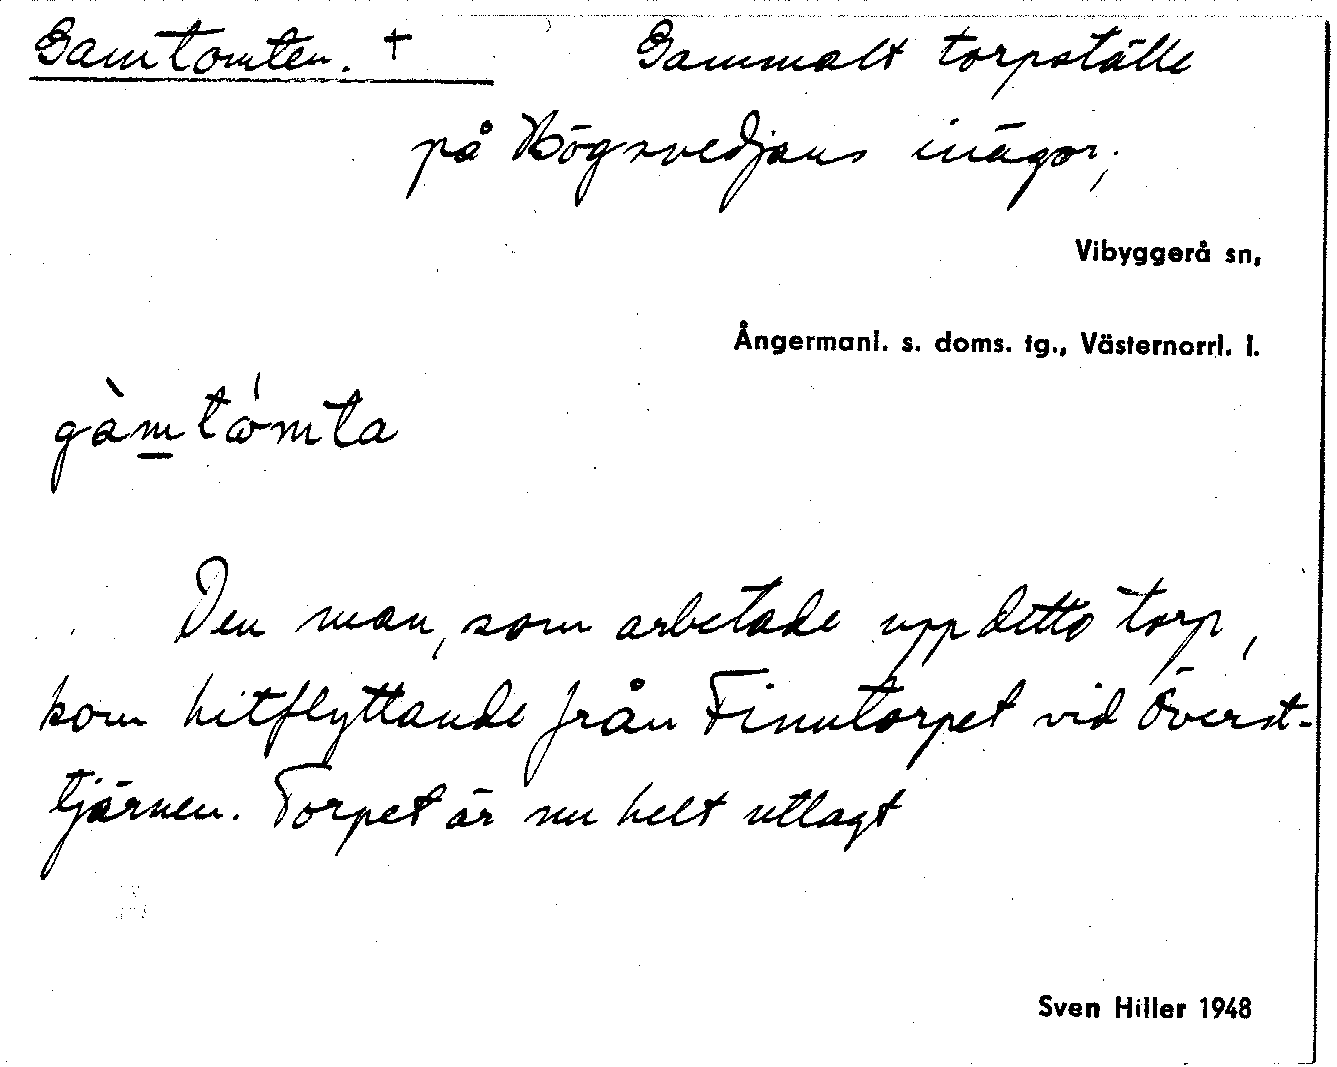 Gamtomten. + Gammalt torpställe
på Högsvedjans inägor;
Vibyggerå sn,
Ångermanl. s. doms. tg., Västernorrl. l.
gàmtómta
Den man, som arbetade upp detta torp,
kom hitflyttande från Finntorpet vid Överst-
tjärnen. Torpet är nu helt utlagt
Sven Hiller 1948